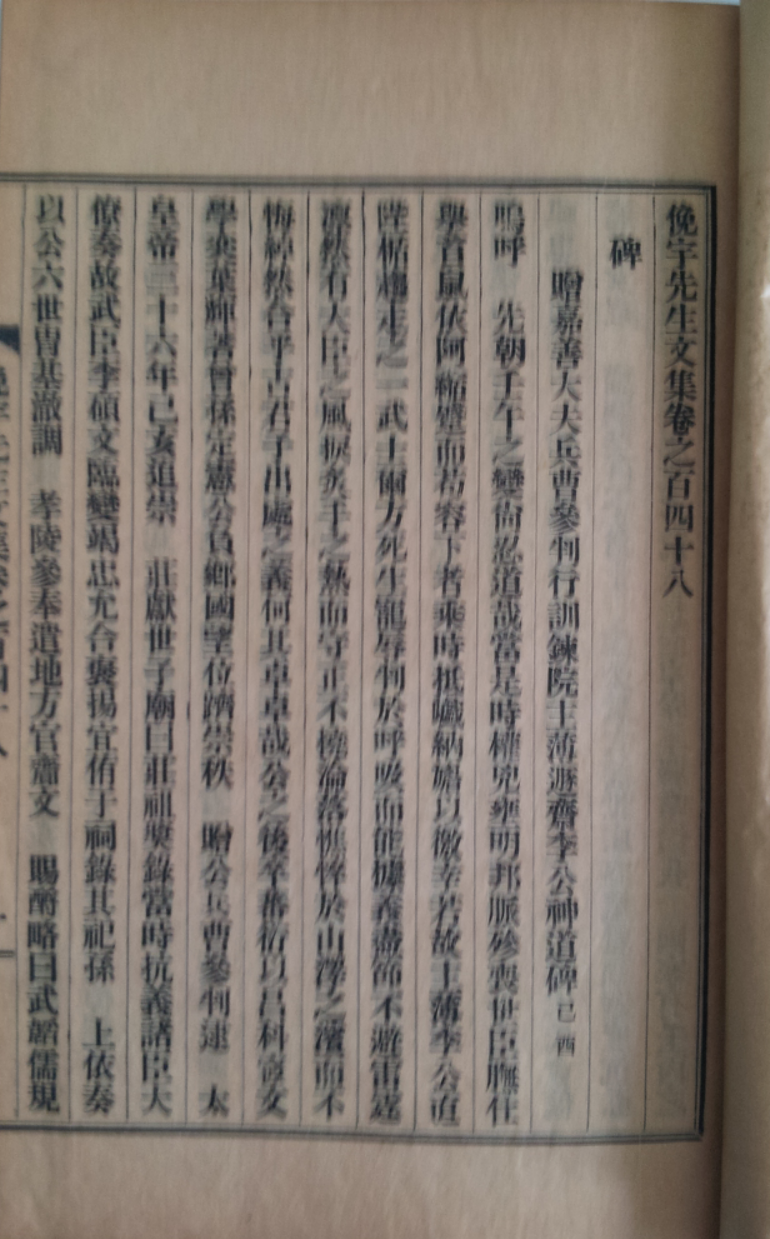 俛宇先生文集卷之百四十八
碑
贈嘉善大夫兵曹參判行訓鍊院主薄遯齋李公神道碑 己酉
嗚呼 先朝壬午之變尙忍道哉當是時權兇壅明邦脈殄喪世臣膴仕
擧首鼠依阿縮蹙而苟容下者乘時抵巇納媚以徼幸若故主薄李公直
陛楯趨走之一武士爾方死生寵辱判於呼吸而能據義盡節不避雷霆
凜然有大臣之風捩炙手之熱而守正不撓淪落憔悴於山澤之濱而不
悔綽然合乎古君子出處之義何其卓卓哉公之後孝蕃衍以昌科宦文
學奕葉輝著曾孫定憲公負鄕國望位躋崇秩 贈公兵曹參判逮 太
皇帝三十六年己亥追崇 莊獻世子廟曰莊祖奬錄當時抗義諸臣大
僚奏故武臣李碩文臨變竭忠允合褒揚宜侑于祠錄其祀孫 上依奏
以公六世冑基澈調 孝陵參奉遣地方官齎文 賜酹略曰武韜儒規